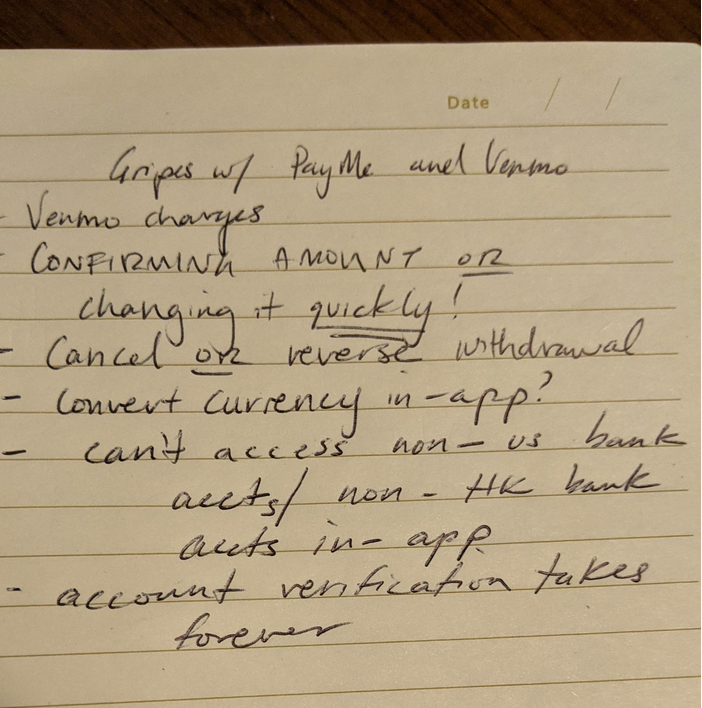 Date / /
Gripes w/ PayMe and Venmo
- Venmo charges
- CONFIRMING AMOUNT OR
changing it quickly!
- Cancel OR reverse withdrawal
- Convert currency in-app?
- can't access non-US bank
accts/ non-HK bank
accts in-app.
- account verification takes
forever